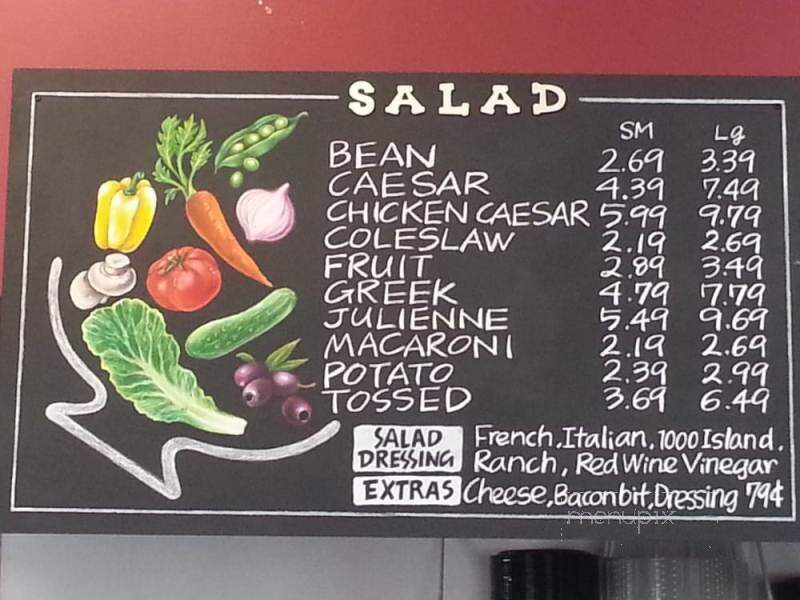 SALAD
SM Lg
BEAN 2.69 3.39
CAESAR 4.39 7.49
CHICKEN CAESAR 5.99 9.79
COLESLAW 2.19 2.69
FRUIT 2.89 3.49
GREEK 4.79 7.79
JULIENNE 5.49 9.69
MACARONI 2.19 2.69
POTATO 2.39 2.99
TOSSED 3.69 6.49
SALAD DRESSING French, Italian, 1000 Island,
Ranch, Red Wine Vinegar
EXTRAS Cheese, Baconbit, Dressing 79¢
menupix